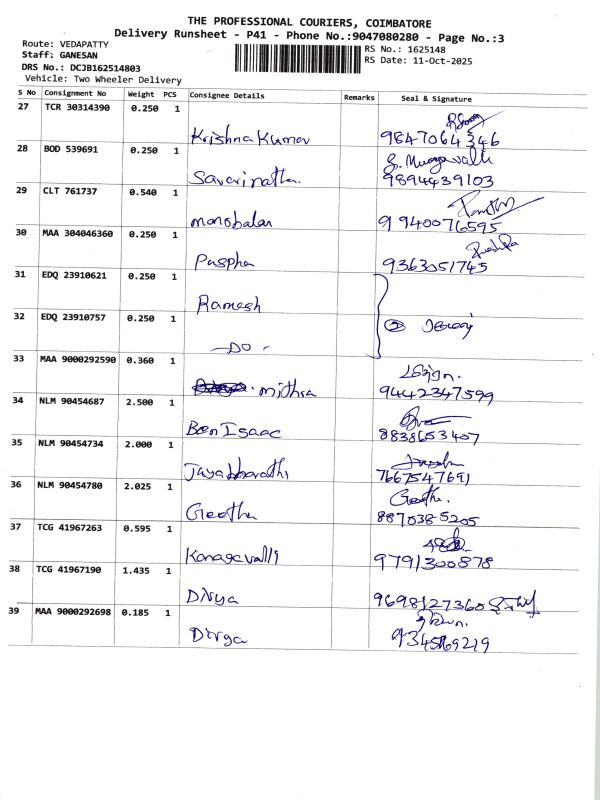 THE PROFESSIONAL COURIERS, COIMBATORE
Delivery Runsheet - P41 - Phone No.:9047080280 - Page No.:3
Route: VEDAPATTY
Staff: GANESAN
RS No.: 1625148
DRS No.: DCJB162514803
RS Date: 11-Oct-2025
Vehicle: Two Wheeler Delivery
S No Consignment No Weight PCS Consignee Details Remarks Seal & Signature
27 TCR 30314390 0.250 1
Krishna Kumar 9847064346
28 BOD 539691 0.250 1
9894439103
29 CLT 761737 0.540 1
manobalan 9940076595
30 MAA 304046360 0.250 1
Puspha 9363051745
31 EDQ 23910621 0.250 1
Ramesh
32 EDQ 23910757 0.250 1
- DO -
33 MAA 9000292590 0.360 1
mithra 9442347599
34 NLM 90454687 2.500 1
Ben Isaac 8838653407
35 NLM 90454734 2.000 1
Jayabharathi 7667547691
36 NLM 90454780 2.025 1
Geetha.
Geetha 8870385205
37 TCG 41967263 0.595 1
Kanagavalli 9791300878
38 TCG 41967190 1.435 1
Divya 9698127360
39 MAA 9000292698 0.185 1
Divya